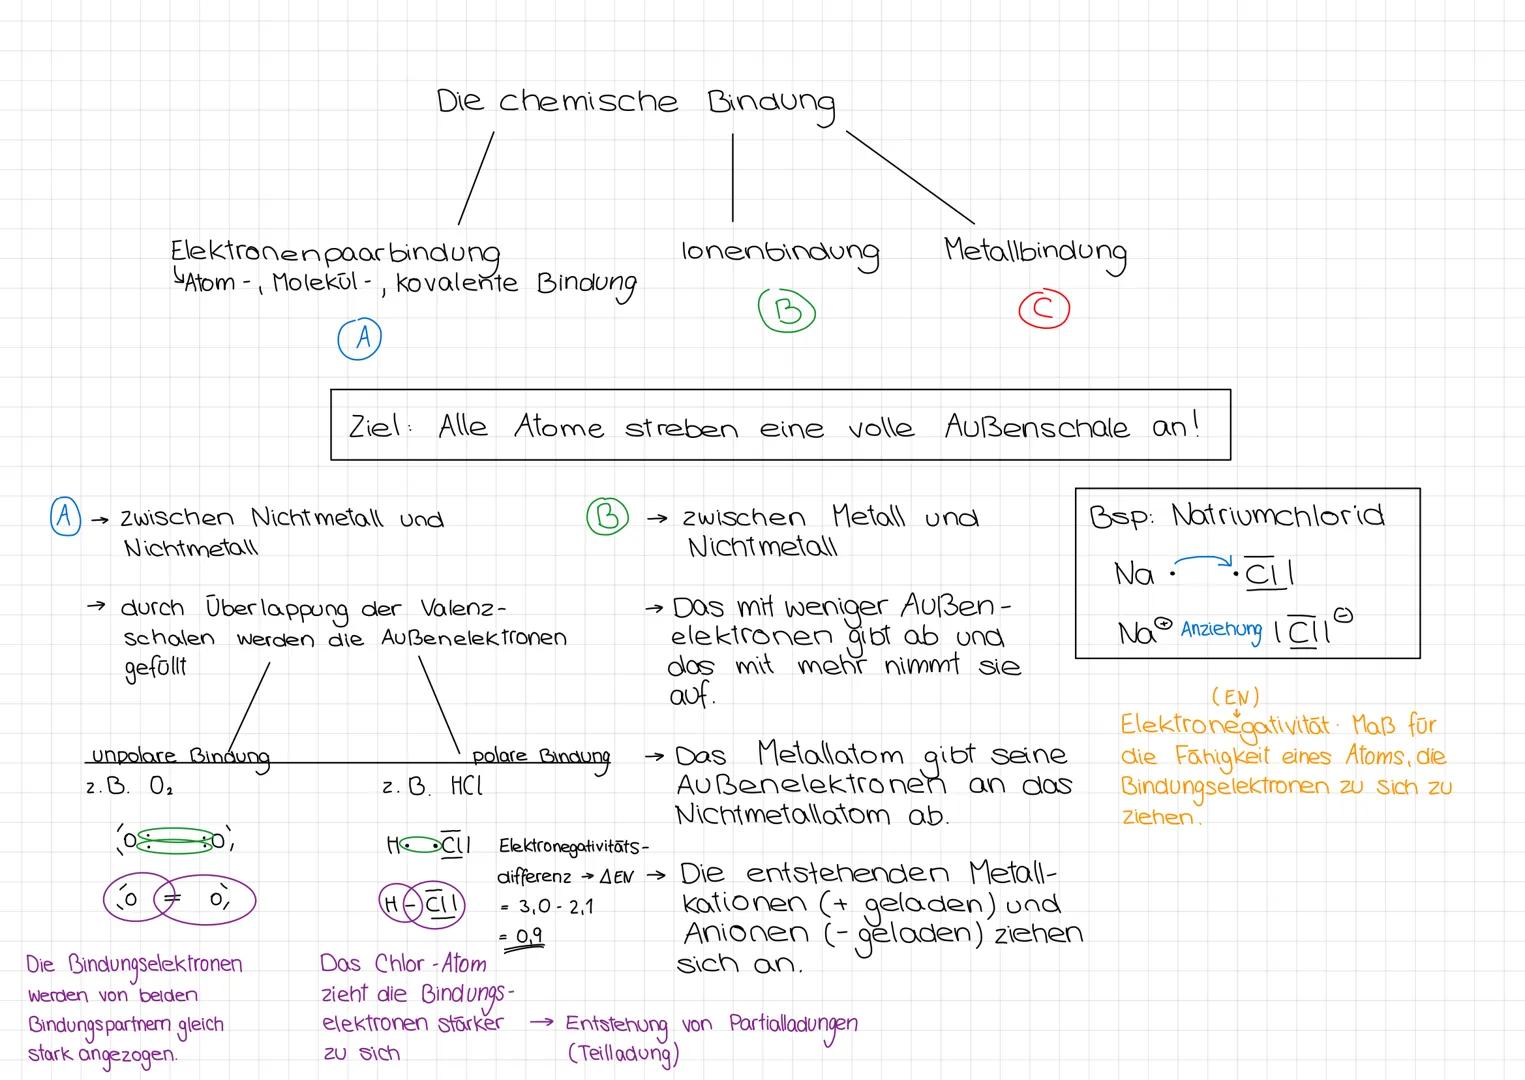 Die chemische Bindung
Elektronenpaarbindung
↳Atom-, Molekül-, kovalente Bindung
A
Ionenbindung
B
Metallbindung
C
Ziel: Alle Atome streben eine volle Außenschale an!
A → zwischen Nichtmetall und
Nichtmetall
→ durch Überlappung der Valenz-
schalen werden die Außenelektronen
gefüllt
unpolare Bindung
z.B. O₂
O O
O = O
Die Bindungselektronen
werden von beiden
Bindungspartnern gleich
stark angezogen.
polare Bindung
z.B. HCl
H· ·Cl|
H - Cl|
Elektronegativitäts-
differenz → ΔEN
= 3,0 - 2,1
= 0,9
Das Chlor-Atom
zieht die Bindungs-
elektronen stärker
zu sich
→ Entstehung von Partialladungen
(Teilladung)
B → zwischen Metall und
Nichtmetall
→ Das mit weniger Außen-
elektronen gibt ab und
das mit mehr nimmt sie
auf.
→ Das Metallatom gibt seine
Außenelektronen an das
Nichtmetallatom ab.
→ Die entstehenden Metall-
kationen (+ geladen) und
Anionen (- geladen) ziehen
sich an.
Bsp: Natriumchlorid
Na · ·Cl|
Na⊕ Anziehung |Cl|⊖
(EN)
Elektronegativität: Maß für
die Fähigkeit eines Atoms, die
Bindungselektronen zu sich zu
ziehen.